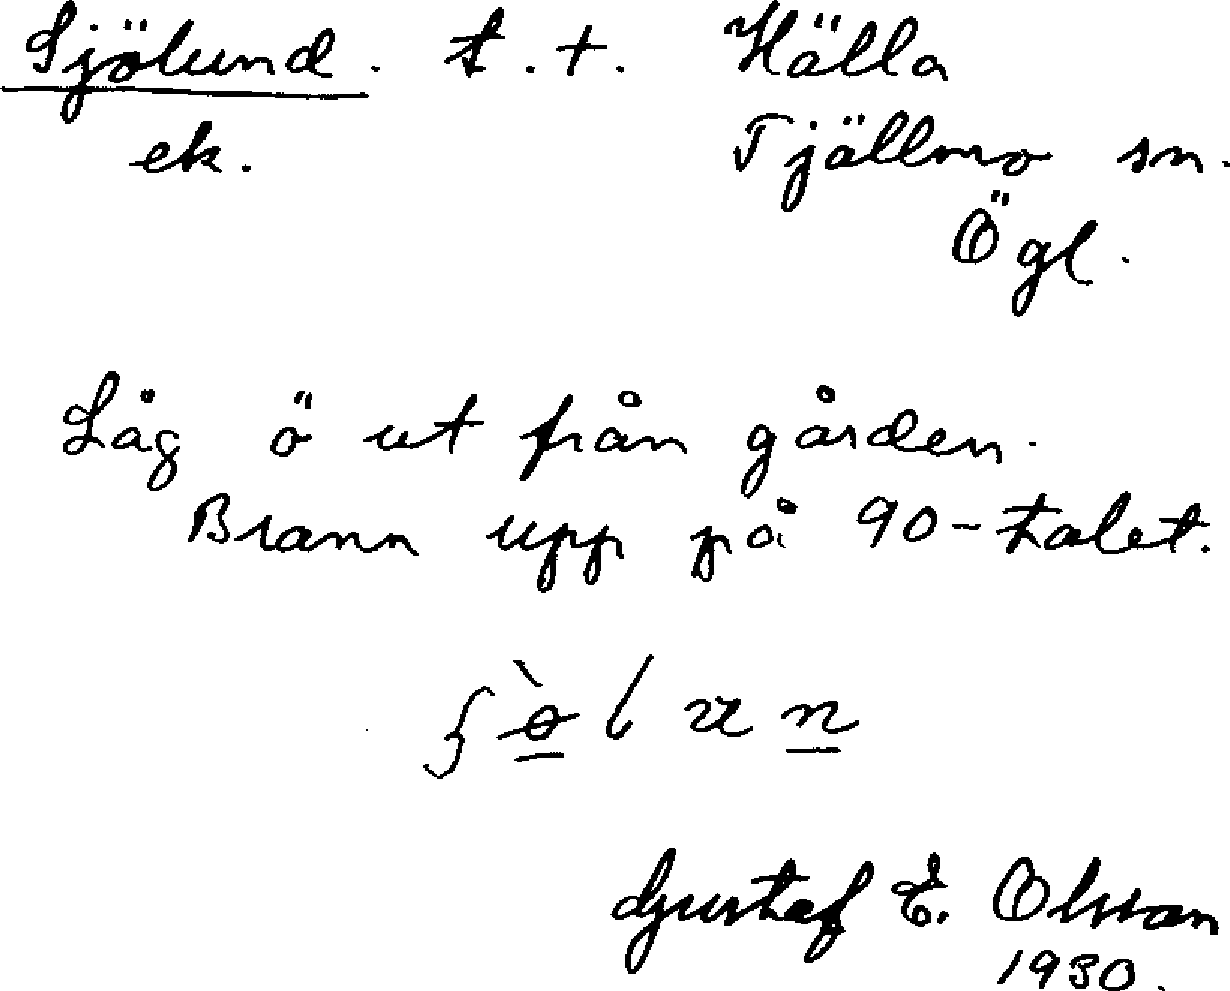 Sjölund. t.t. Hälla
ek. Tjällmo sn.
Ögl.
Låg ö ut från gården.
Brann upp på 90-talet.
Gustaf E. Olsson
1930.